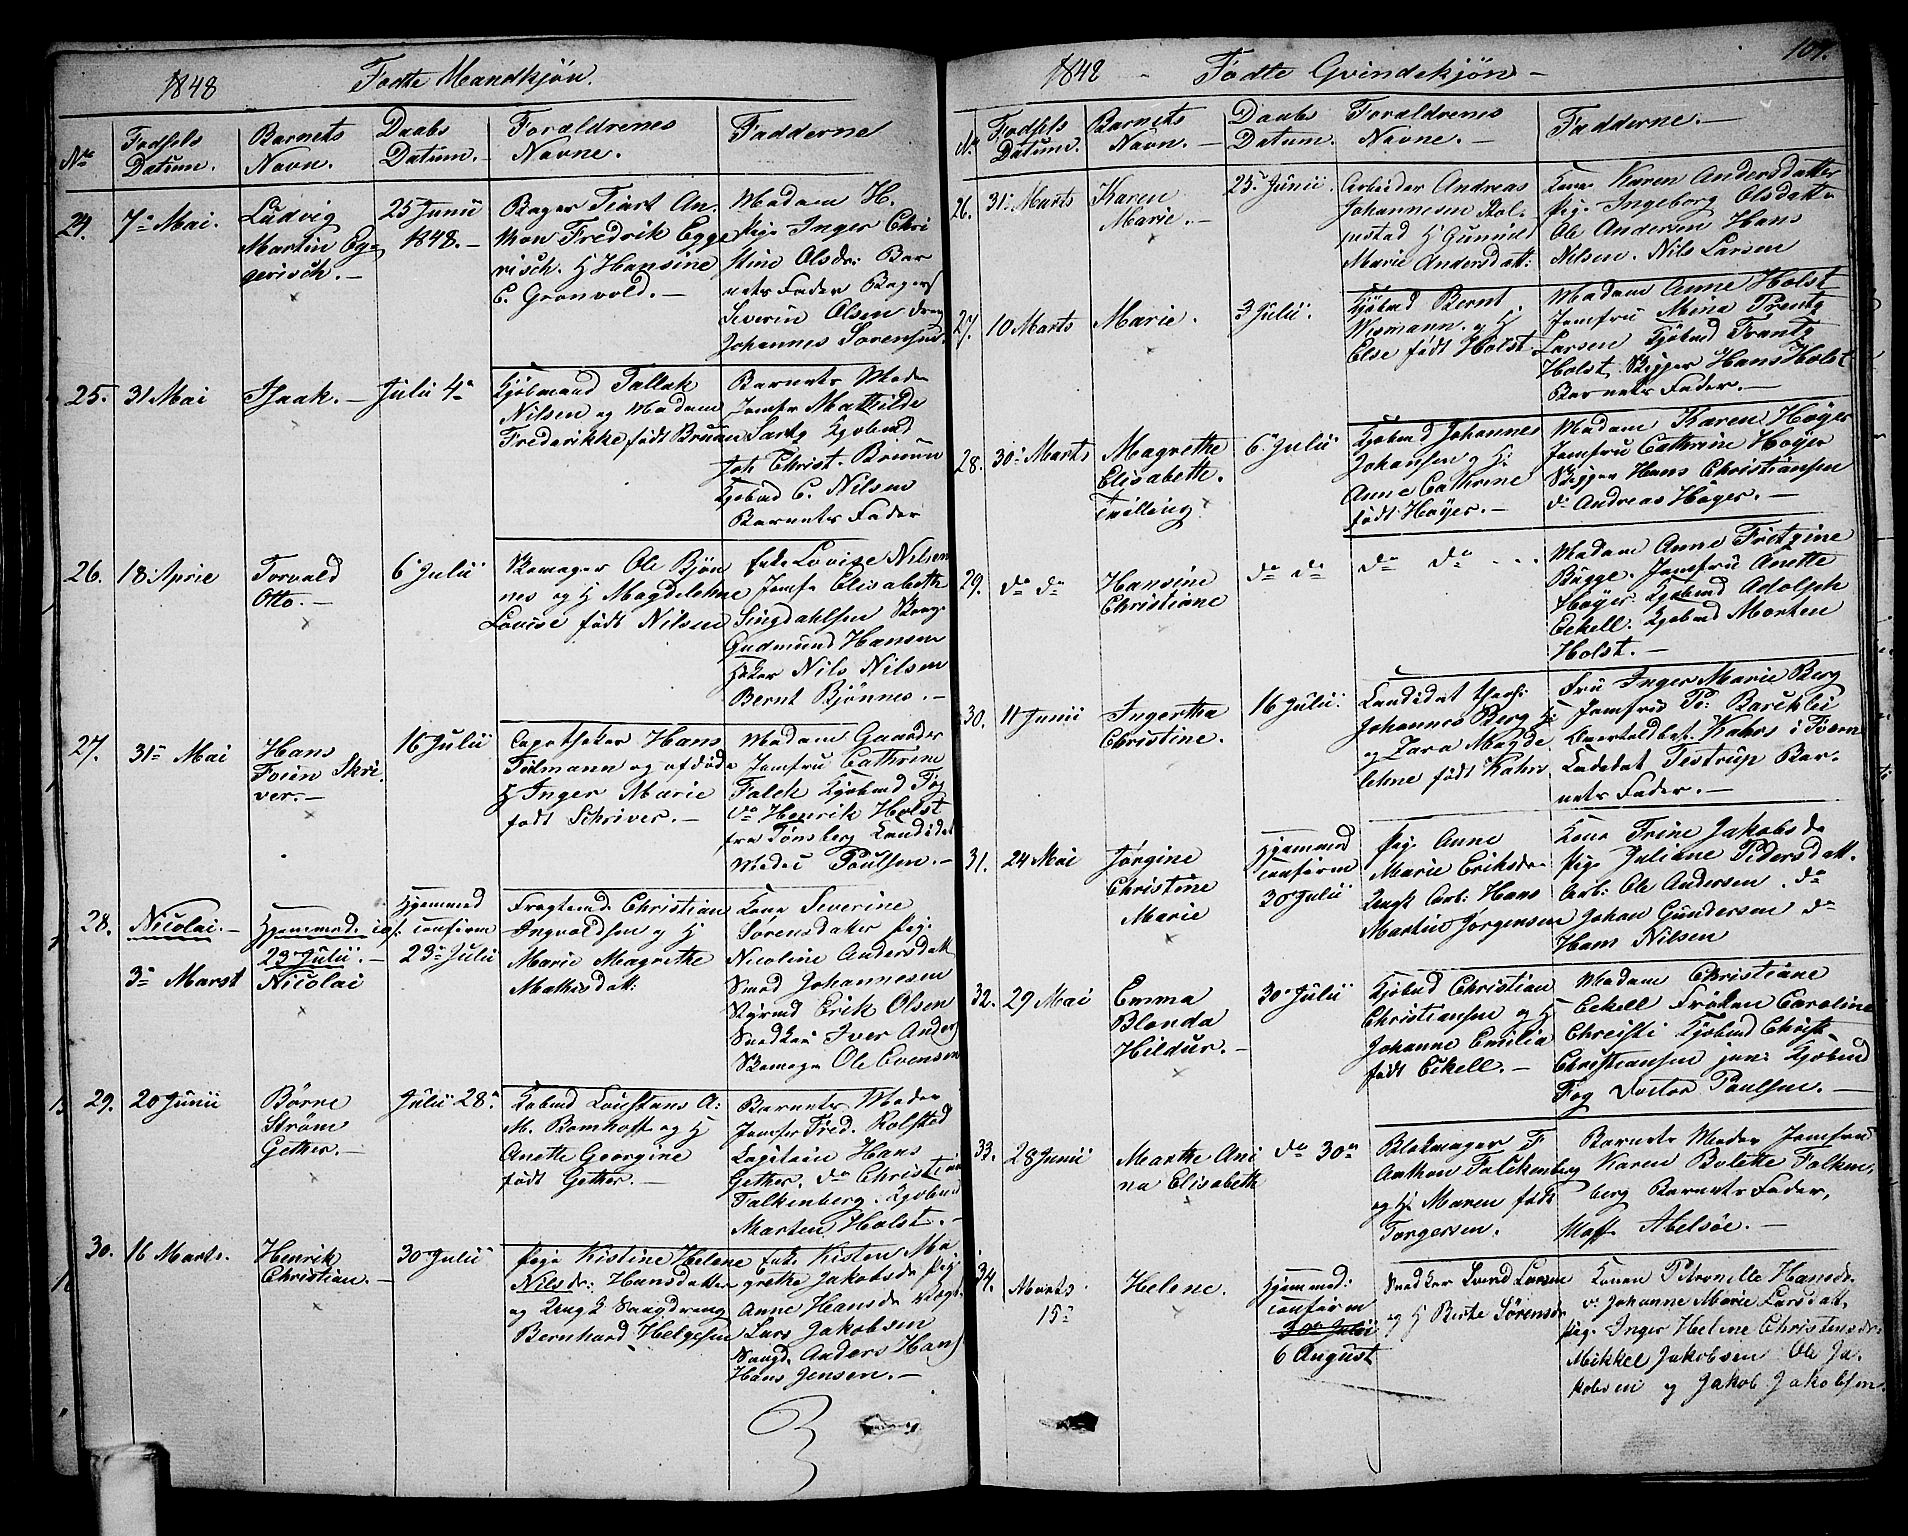 1848 Fødte Mandkjøn.
No
Fødsels Datum.
Barnets Navn.
Daabs Datum.
Forældrenes Navne.
Fadderne
24. 7de Mai.
Ludvig
Martin Eg-
gerisch.
25 Junii
1848.
Bager Fiart An-
thon Fredrik Egge
risch. H Hansine
C. Grønvold.
Madam H.
Pige Inger Chri
stine Olsdr: Bar
nets Fader Bager
Severin Olsen dreng
Johannes Sørensen
25. 31 Mai
Isaak.
Julii 4de
Kjøbmand Tallak
Nilsen og Madam
Frederikke født Bruun
Barnets Moder
Jomfr Mathilde
Lartz Kjøbmd
Joh Christ. Bruun
Kjøbmd C. Nilsen
Barnets Fader
26. 18 April
Torvald
Otto.
6 Julii
Skomager Ole Bjøn
nes og H Magdelehne
Lovise født Nilsen
Enke Lovise Nilsen
Jomfr Elisabethe
Singdahlsen Skog
Gudmund Hansen
Høker Nils Nilsen
Bernt Bjønnes.
27. 31te Mai
Hans
Foien Skri
ver.
16 Julii
Apotheker Hans
Tilmann og afdøde
H Inger Marie
født Schriver.
Madam Gaarder
Jomfru Cathrine
Falck Kjøbmd Fog
do Henrik Holst
fra Tønsberg Candidat
Medici Poulsen.
28. Nicolai.
3de Marst
Hjemmed.
23 Julii.
Nicolai
Hjemmed
confirm
23de Julii
Fragtemd Christian
Ingvoldsen og H
Marie Magrethe
Mathisdatt:
Kone Severine
Sørensdatter Pig:
Nicoline Andersdatt
Smed Johannesen
Styrmd Erik Olsen
Snedker Iver Anders
Skomagr Ole Evensen
29. 20 Junii
Børre
Strøm
Gether.
Julii 28de
Kobmd Constans A:
M. Bomhoff og H
Anette Georgine
født Gether.
Barnets Moder
Jomfr Fred. Rolfsted
Capitain Hans
Gether, do Christian
Falkenberg. Kjøbmd
Marten Holst.
30. 16 Marts.
Henrik
Christian.
30 Julii
Pige Kistine Helene
Nilsdr: Hansdatter
og Ungk Snegdreng
Bernhard Helgesen
Enk. Kisten Ma
grethe Jakobsdr Pig:
Anne Hansdr
Lars Jakobsen
Snegd. Anders Hans
Hans Jensen.
1848 - Fødte Qvindekjøn -
107.
No
Fødsels Datum.
Barnets Navn.
Daabs Datum.
Forældrenes Navne.
Fadderne.
26. 31te Marts
Karen
Marie.
25 Junii.
Arbeider Andreas
Johannesen Rol-
pestad H Gunild
Marie Andersdatt:
Kone Karen Andersdatter
Pige Ingeborg Olsdatt
Ole Andersen Hans
Nilsen. Nils Larsen
27. 10 Marts
Marie.
3 Julii.
Kjøbmd Bernt
Wismann og H
Else født Holst.
Madam Anne Holst
Jomfru Mina Trentz
Larsen Kjøbmd Frantz
Holst. Skipper Hans Holst
Barnets Fader.
28. 30te Marts
Magrethe
Elisabethe.
Tvilling
6 Julii
Kjøbmd Johannes
Johansen og H:
Anne Cathrine
født Høyer.
Madam Karen Høyer
Jomfru Cathrine Høyer
Skipper Hans Christiansen
do Andreas Høyer.
29. do do
Hansine
Christiane
do do
do do
Madam Anne Fritzine
Bugge. Jomfru Anette
Høyer. Kjøbmd Adolph
Eckell. Kjøbmd Morten
Holst.
30. 11 Junii
Ingertha
Christine.
16 Julii.
Candidat theol:
Johannes Berg H:
og Zara Magde
lehne født Kahrs
Fru Inger Marie Berg
Jomfru P: Barckli
Overtoldbet. Kahrs i Foren
Candidat Testrup Bar-
nets Fader.
31. 24 Mai
Jørgine
Christine
Marie
Hjemmed
confirm
30 Julii
Pige Anne
Marie Eriksdr
Ungk Arb: Hans
Martin Jørgensen
Kone Trine Jakobsdr
Pige Juliane Pedersdatt.
Arb: Ole Andersen. do
Johan Gundersen do
Hans Nilsen
32. 29 Mai
Emma
Blonda
Hildur.
30 Julii
Kjøbmd Christian
Christiansen og H
Johanne Emilia
født Eckell.
Madam Christiane
Eckell Frøken Caroline
Christi Kjøbmd Christ
Christiansen jun: Kjøbmd
Fog Doctor Paulsen.
33. 28 Junii
Marthe Ani
na Elisabeth
do 30de
Blokmager F
Anthon Falckenberg
og H. Maren født
Torgersen.
Barnets Moder Jomfru
Karen Bolette Falken,
berg Barnets Fader,
Moff. Abelsøe.
34. Marts
15de
Helene.
Hjemmed:
confirm
30te Julii
6 August
Snedker Svend Larsen
og H Birte Sørensdr
Konen Petronelle Hansdr.
do Johanne Marie Larsdatt,
Pige. Inger Helene Christensdr
Mikkel Jakobsen Ole Ja-
kobsen og Jakob Jakobsen.